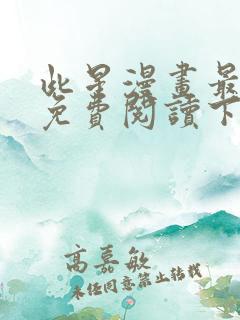 些星漫畫最
免費閱讀下
高嘉敏
未经同意禁止转载